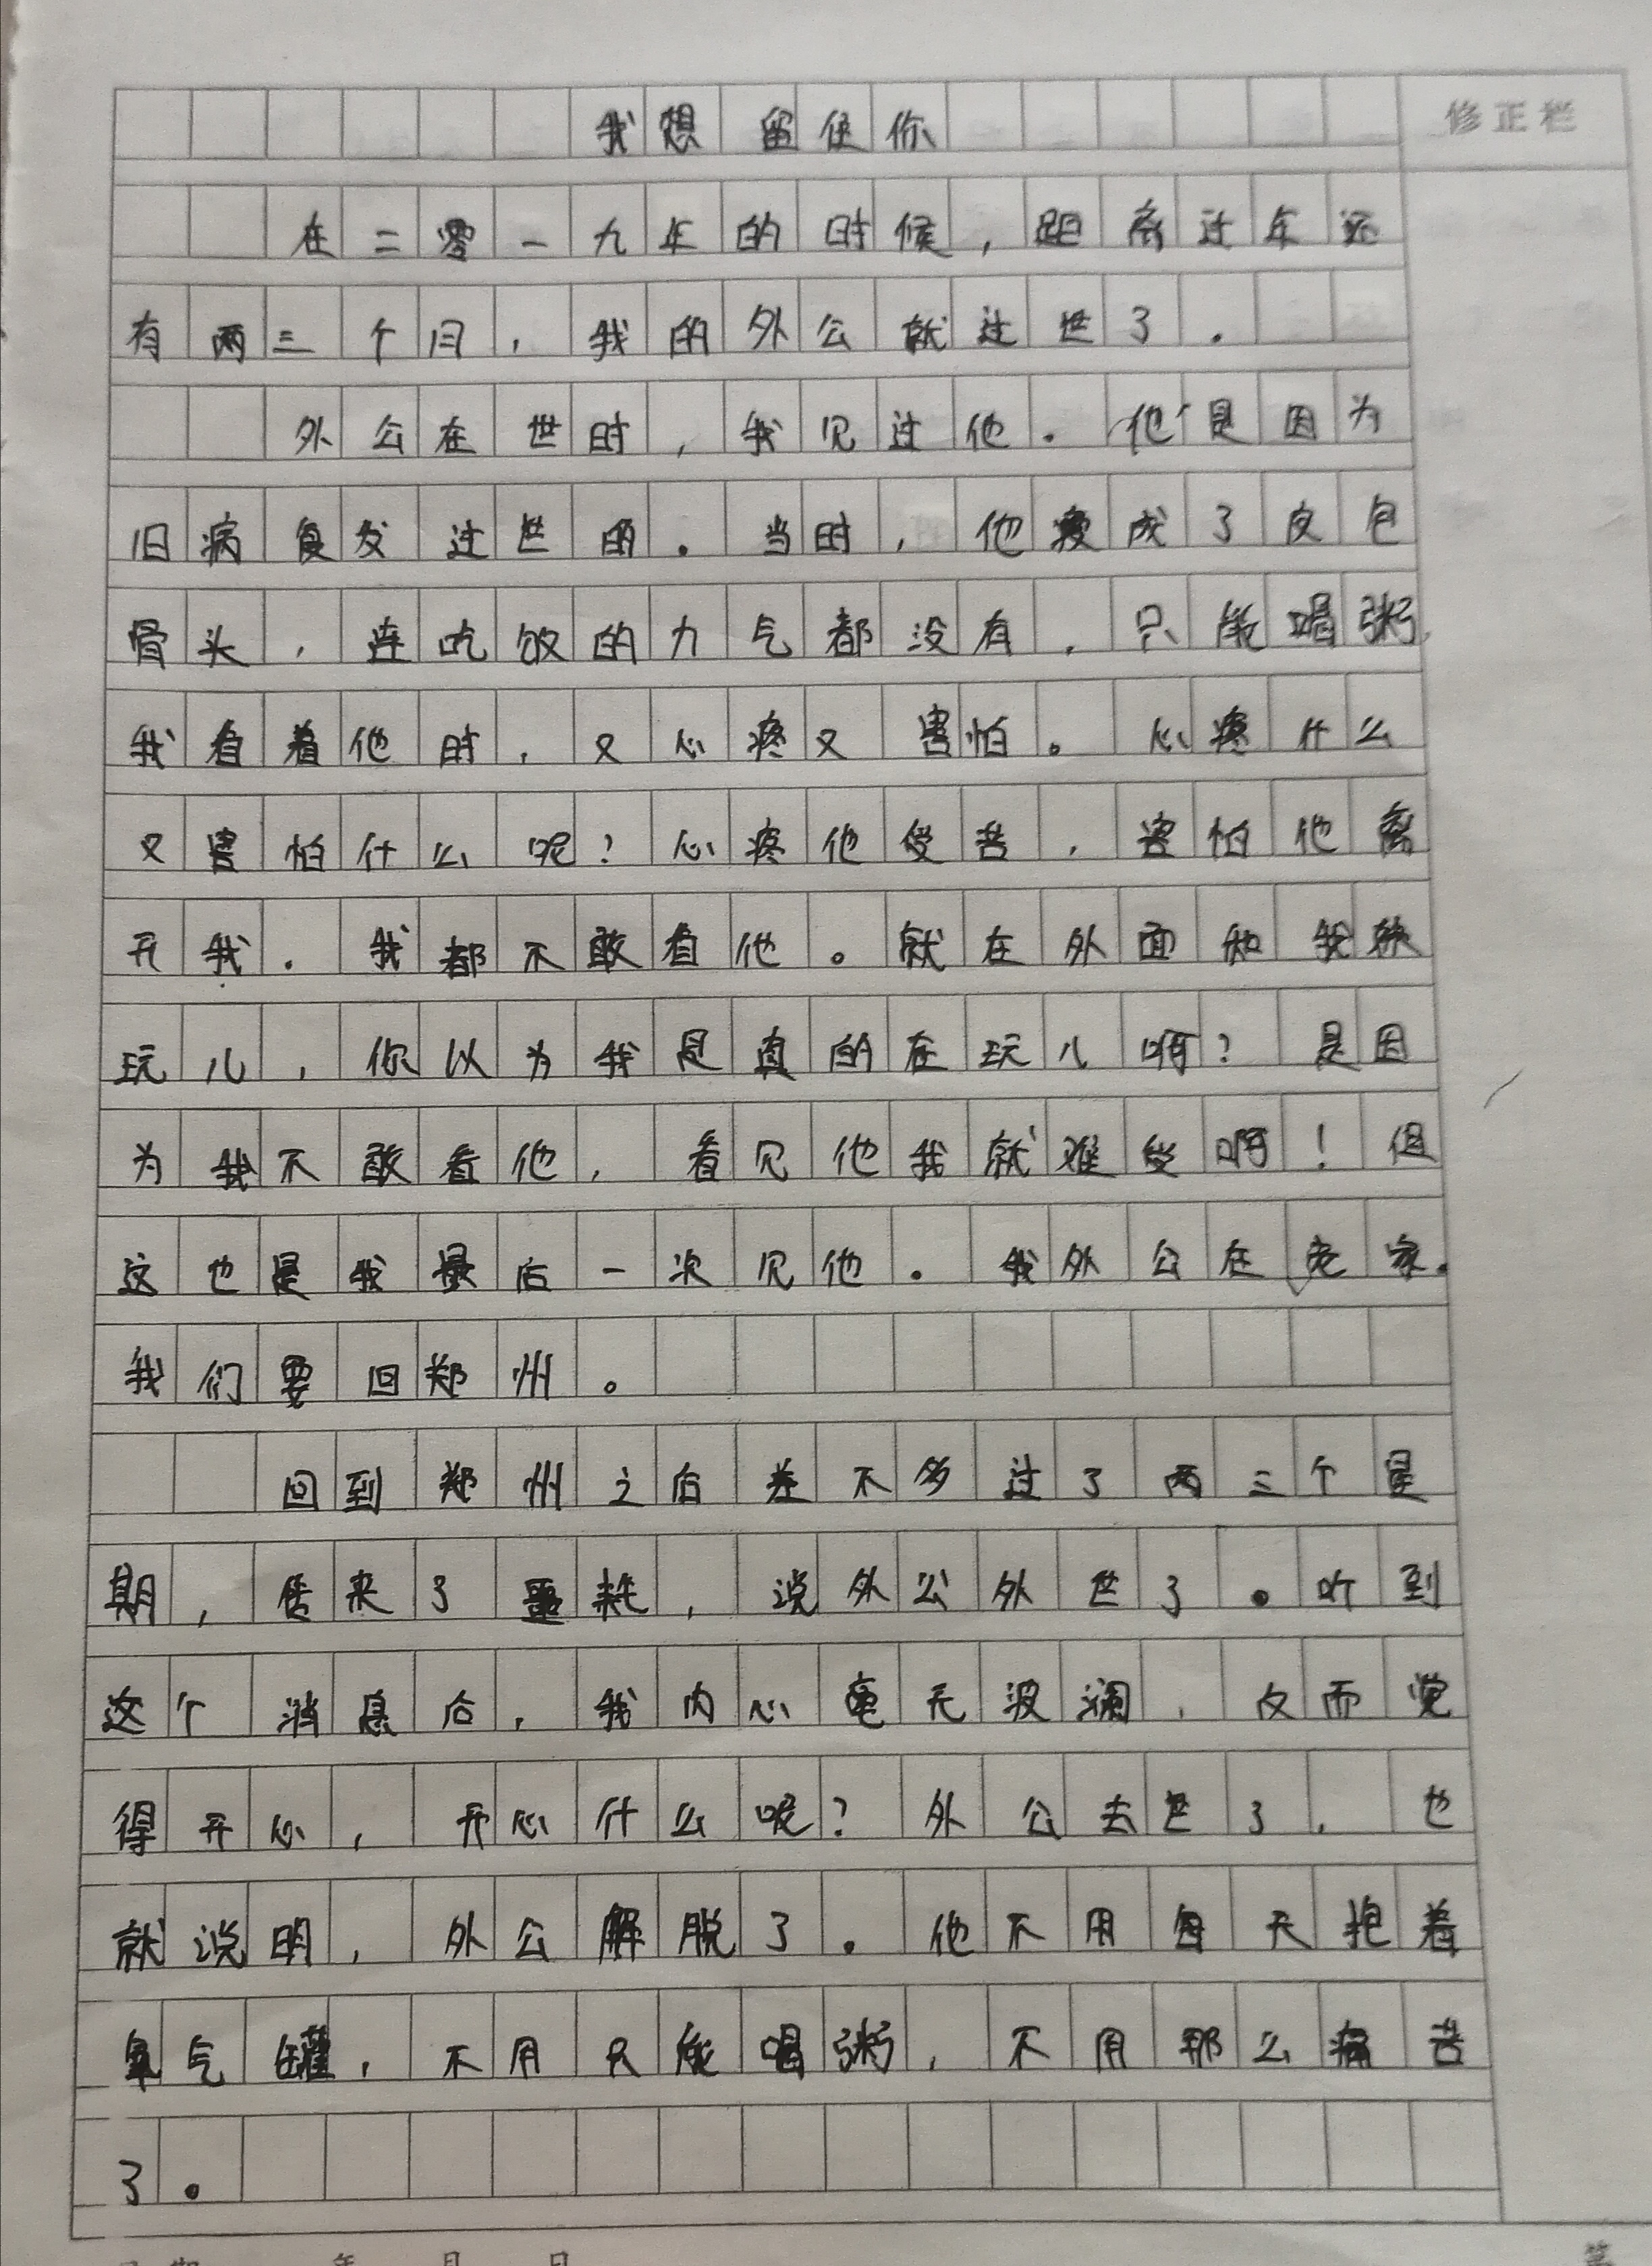 我想留住你
修正栏
在二零一九年的时候，距离过年还
有两三个月，我的外公就过世了。
外公在世时，我见过他。他是因为
旧病复发过世的。当时，他瘦成了皮包
骨头，连吃饭的力气都没有，只能喝粥，
我看着他时，又心疼又害怕。心疼什么
又害怕什么呢？心疼他受苦，害怕他离
开我。我都不敢看他。就在外面和我妹
玩儿，你以为我是真的在玩儿啊？是因
为我不敢看他，看见他我就难受啊！但
这也是我最后一次见他。我外公在老家。
我们要回郑州。
回到郑州之后差不多过了两三个星
期，传来了噩耗，说外公外世了。听到
这个消息后，我内心毫无波澜，反而觉
得开心，开心什么呢？外公去世了，也
就说明，外公解脱了。他不用每天抱着
氧气罐，不用只能喝粥，不用那么痛苦
了。
年 月 日